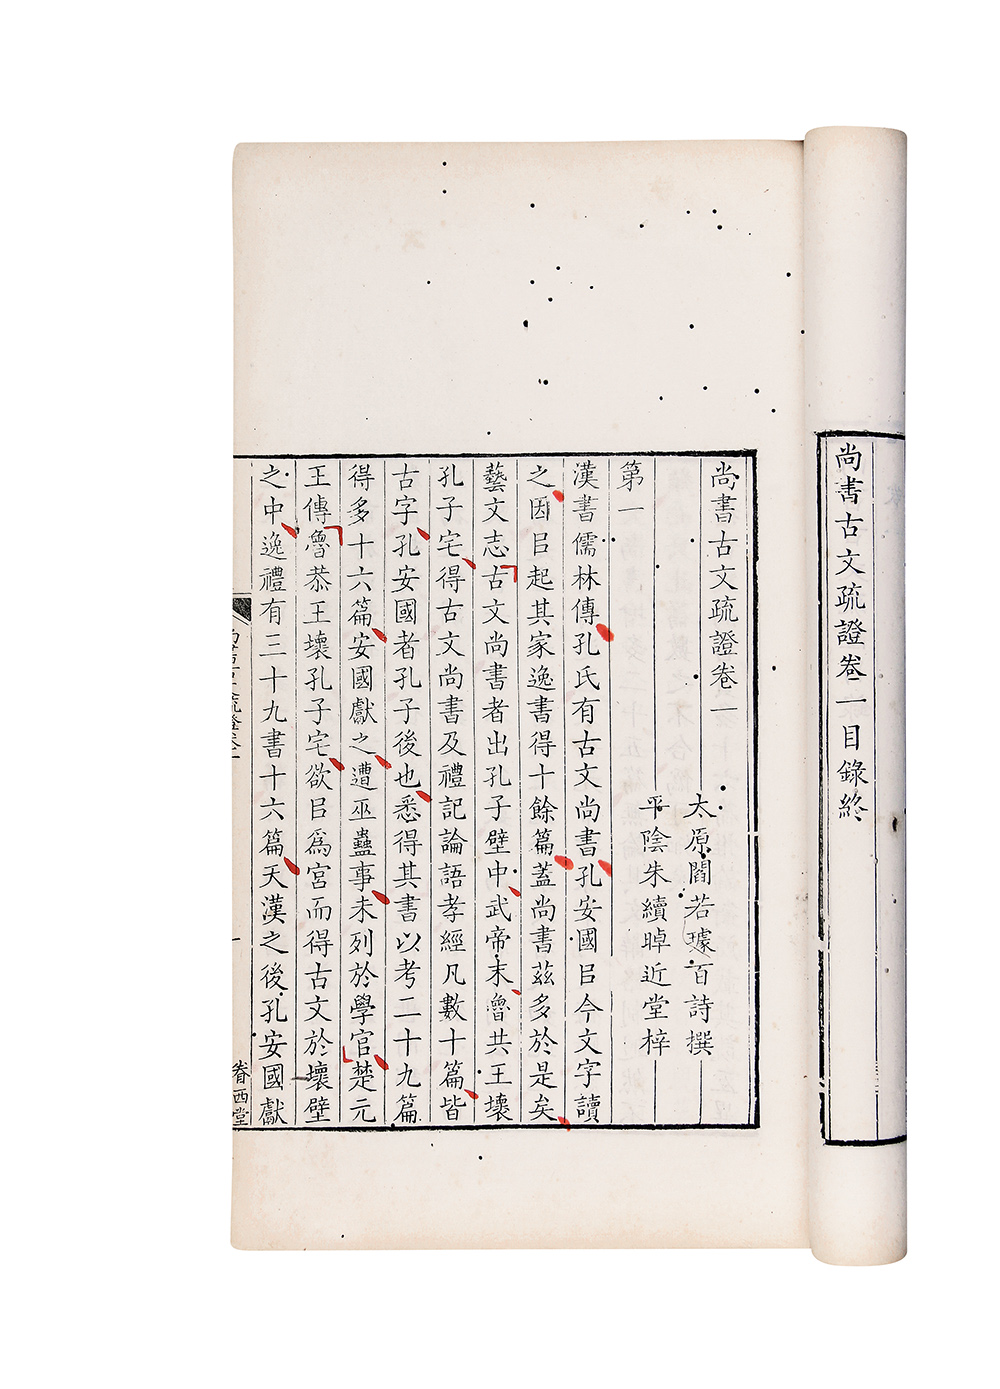 尚書古文疏證卷一目錄終
尚書古文疏證卷一
太原閻若璩百詩撰
平陰朱續晫近堂梓
第一
漢書儒林傳孔氏有古文尚書孔安國㠯今文字讀
之因㠯起其家逸書得十餘篇蓋尚書茲多於是矣
藝文志古文尚書者出孔子壁中武帝末魯共王壞
孔子宅得古文尚書及禮記論語孝經凡數十篇皆
古字孔安國者孔子後也悉得其書以考二十九篇
得多十六篇安國獻之遭巫蠱事未列於學官楚元
王傳魯恭王壞孔子宅欲㠯爲宮而得古文於壞壁
之中逸禮有三十九書十六篇天漢之後孔安國獻
眷西堂